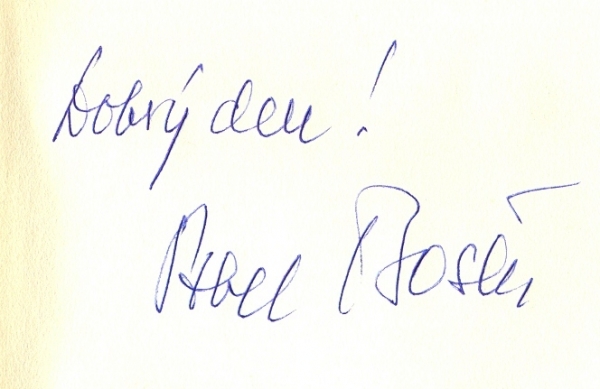 Dobrý den!
Pavel Bošek